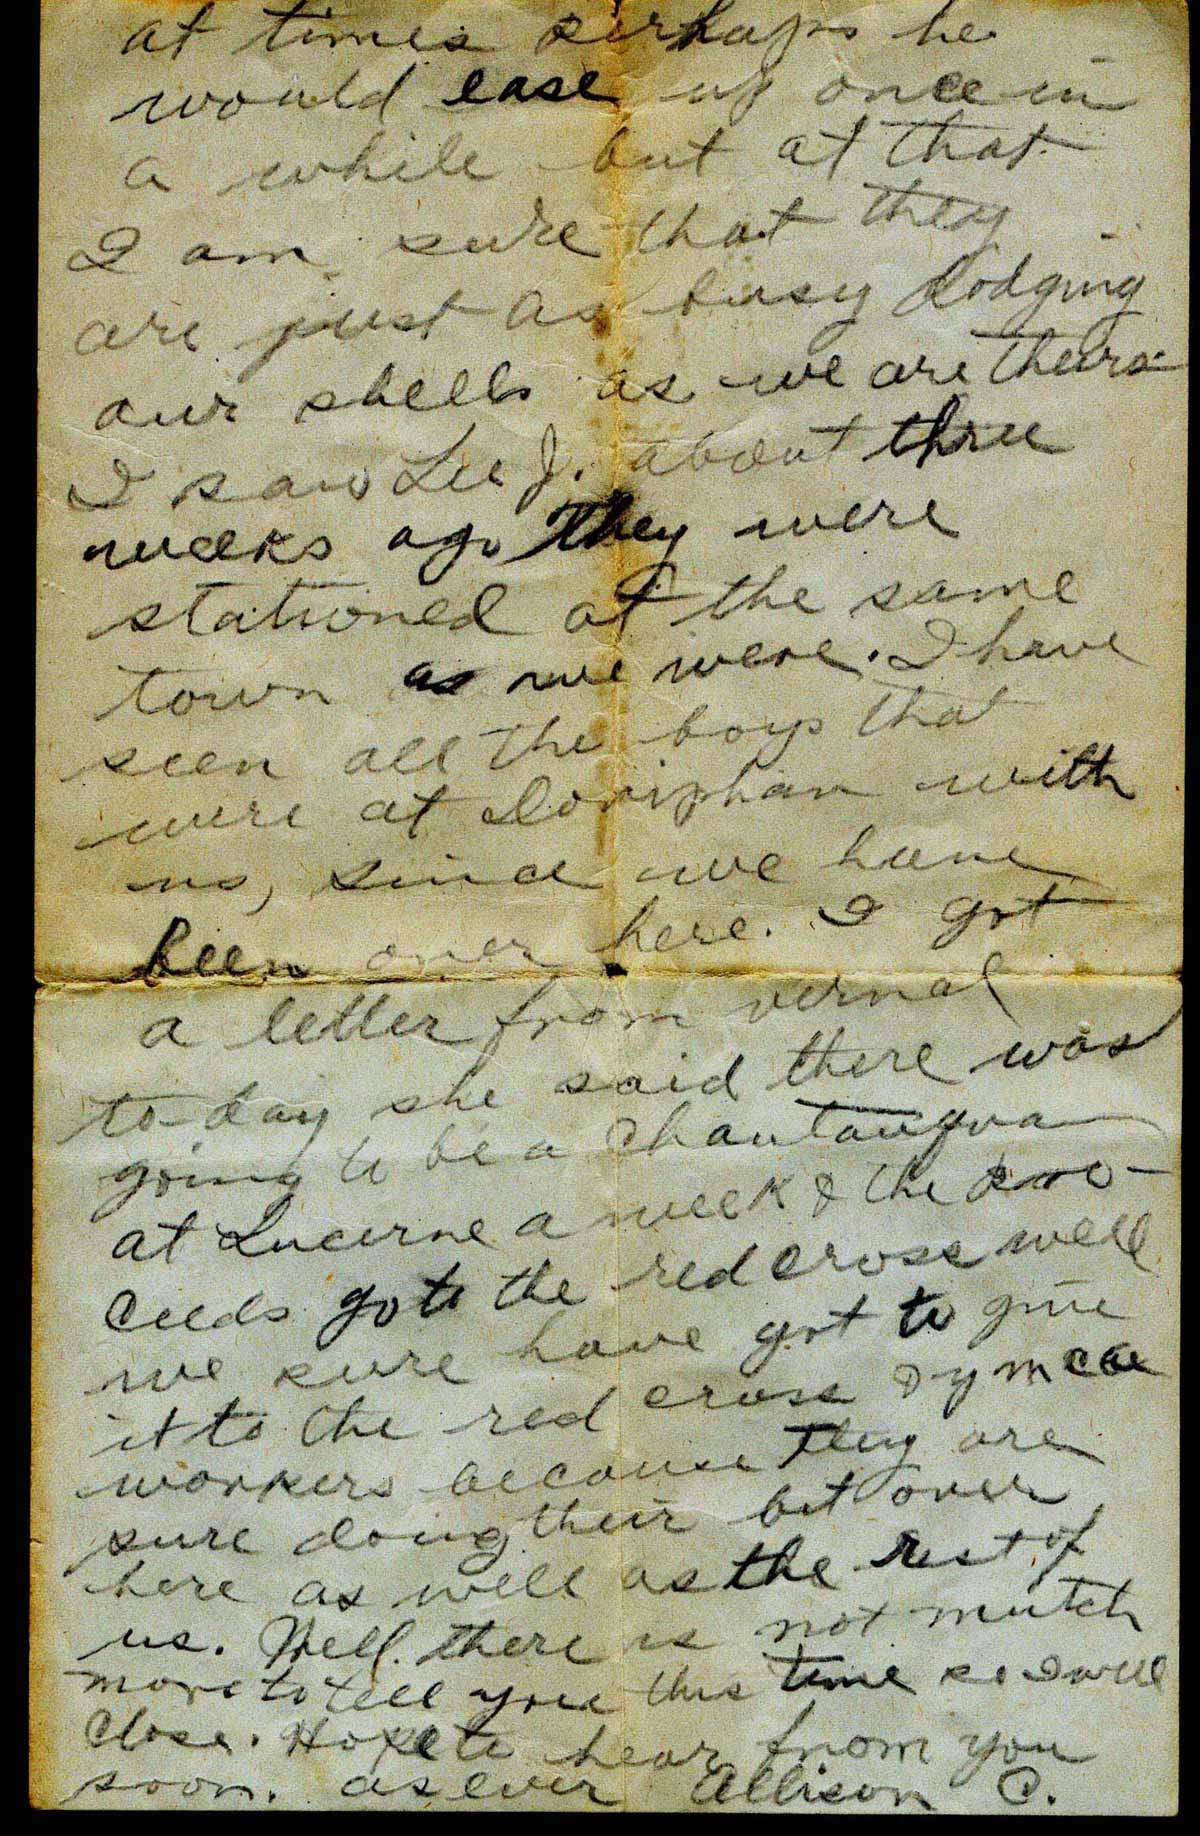 at times perhaps he
would ease up once in
a while but at that
I am sure that they
are just as busy dodging
our shells as we are theirs
I saw Lee J. about three
weeks ago they were
stationed at the same
town as we were. I have
seen all the boys that
were at Doniphan with
us, since we have
been over here. I got
a letter from vernal
to-day she said there was
going to be a Chautauqua
at Lucerne a week & the pro-
ceeds go to the red cross well
we sure have got to give
it to the red cross & y m c a
workers because they are
sure doing their bit over
here as well as the rest of
us. Well. there is not mutch
more to tell you this time so I will
close. Hope to hear from you
soon. as ever Allison C.